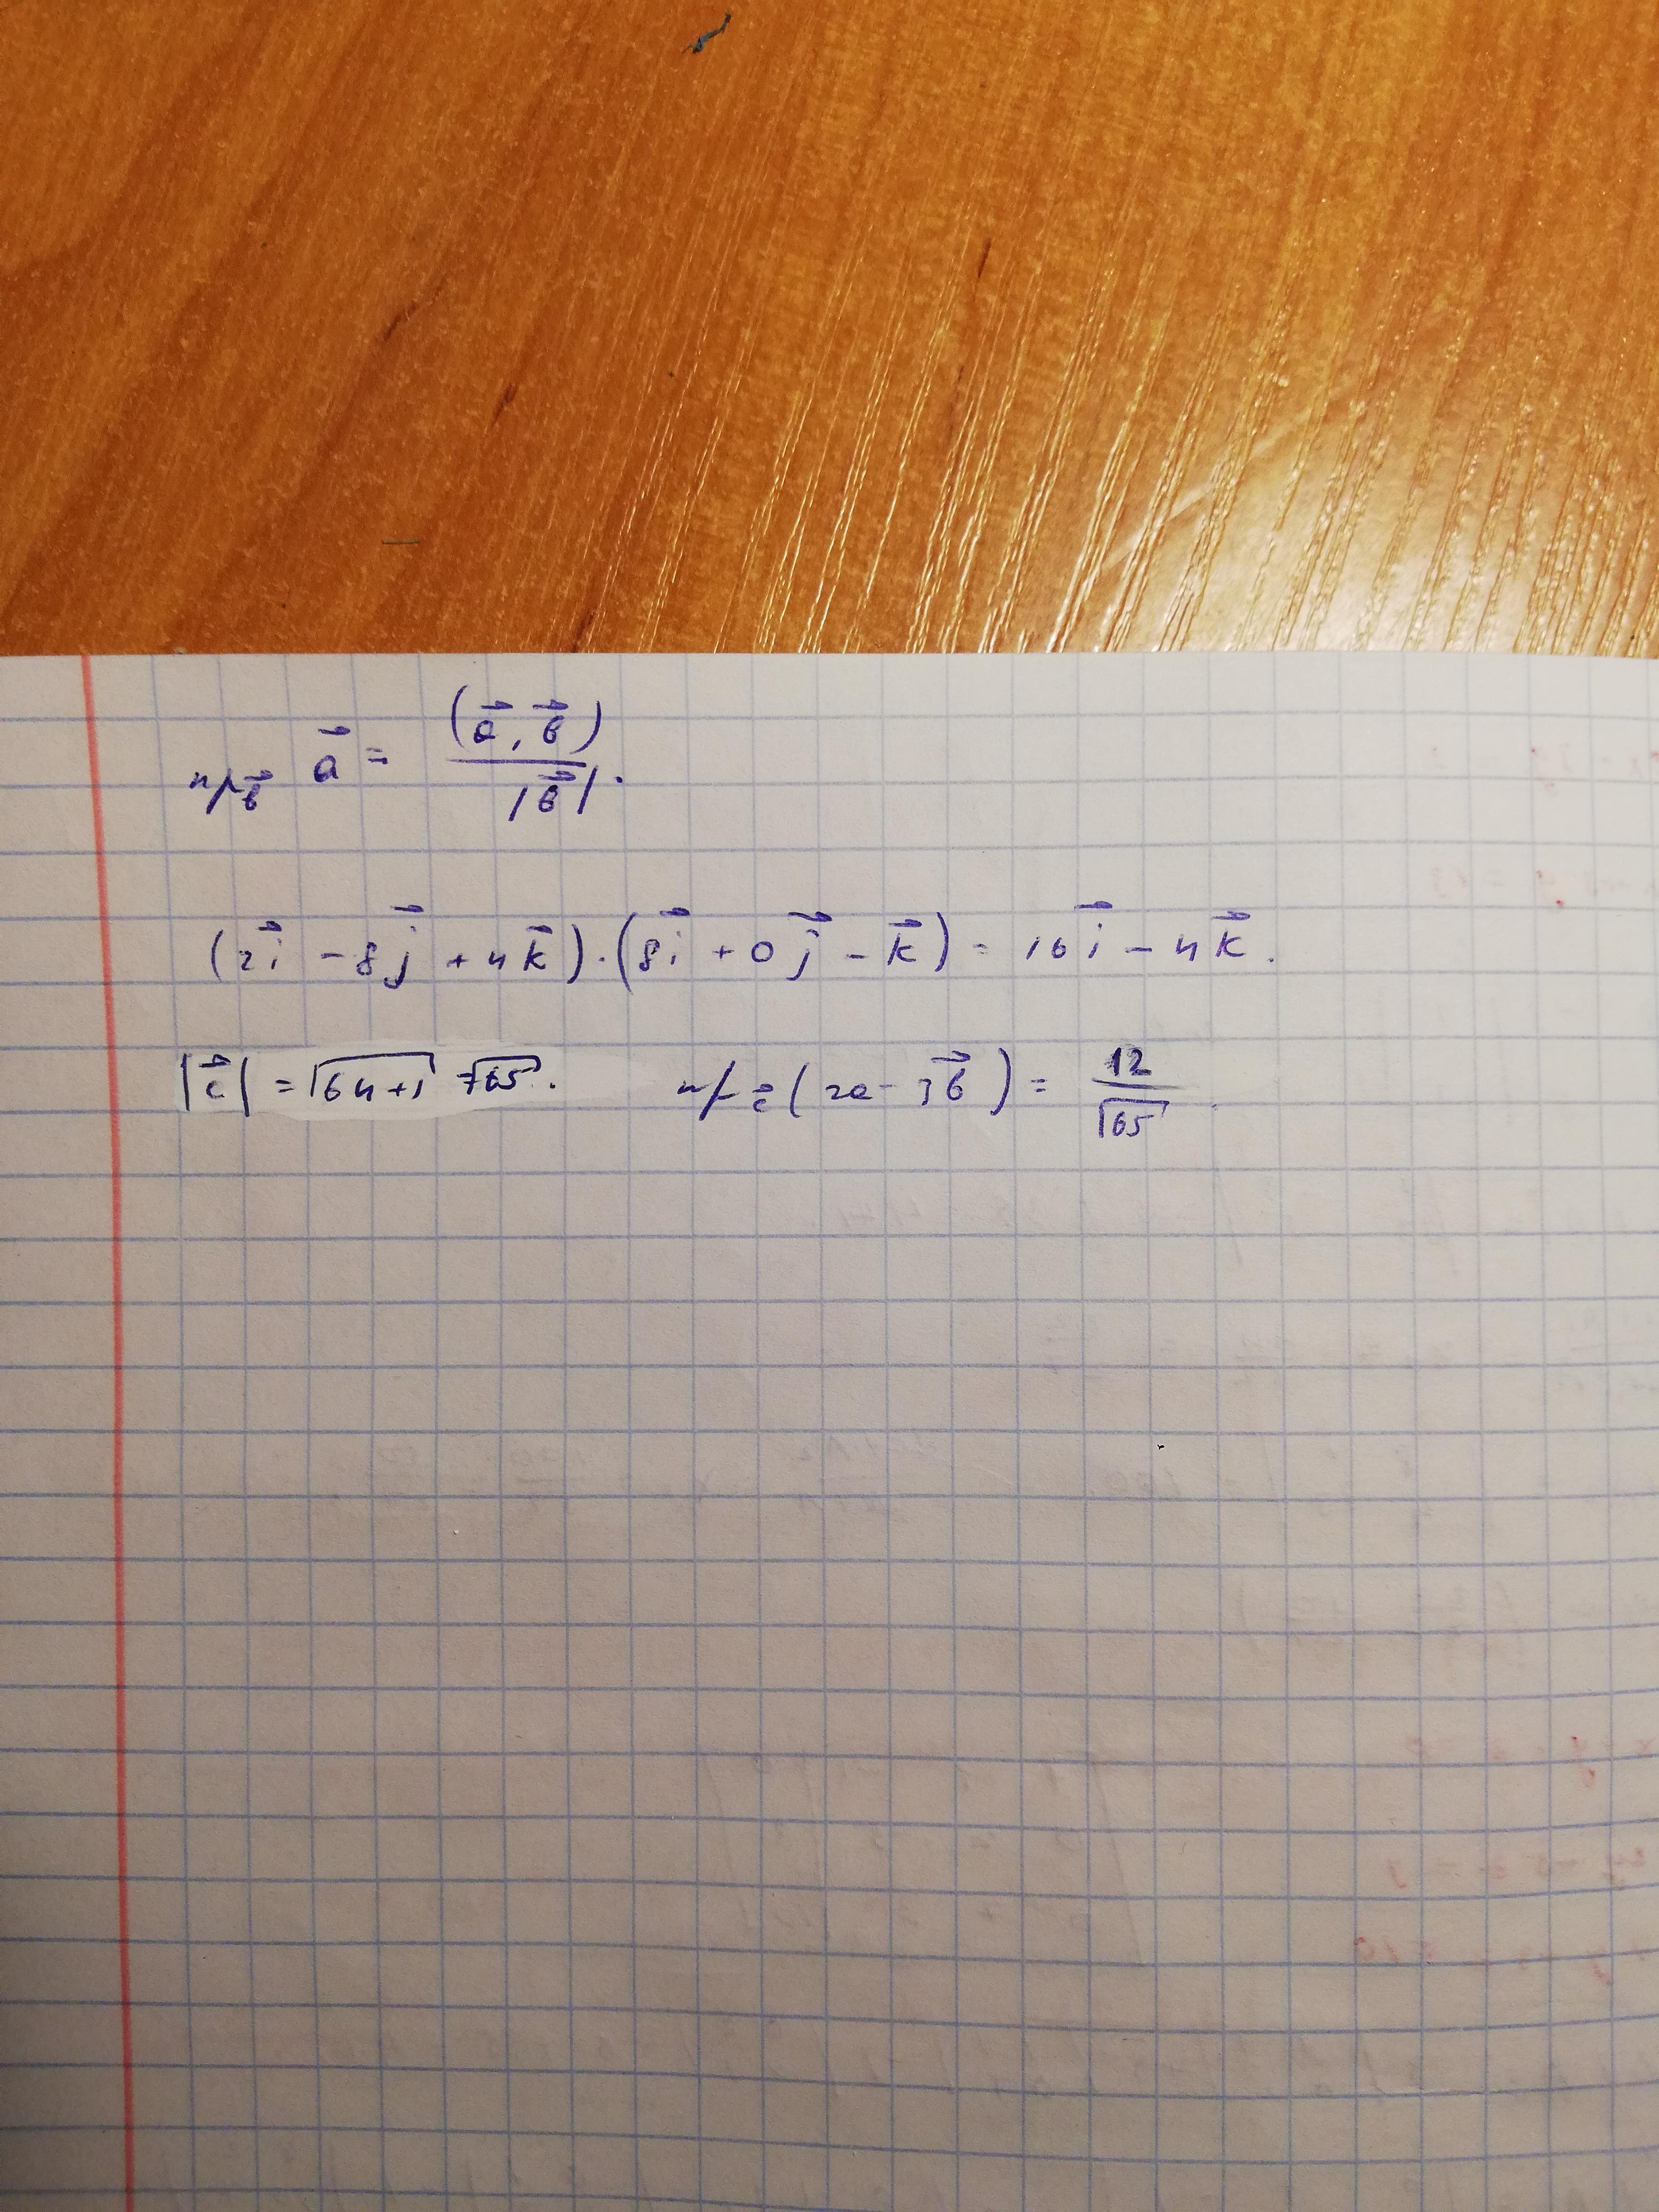 пр_{\vec{в}} \vec{a} = \frac{(\vec{a}, \vec{в})}{|\vec{в}|}.
(2\vec{i} - 8\vec{j} + 4\vec{k}) \cdot (8\vec{i} + 0\vec{j} - \vec{k}) = 16\vec{i} - 4\vec{k}.
|\vec{c}| = \sqrt{64+1} = \sqrt{65}. пр_{\vec{c}} (2a - 3\vec{в}) = \frac{12}{\sqrt{65}}